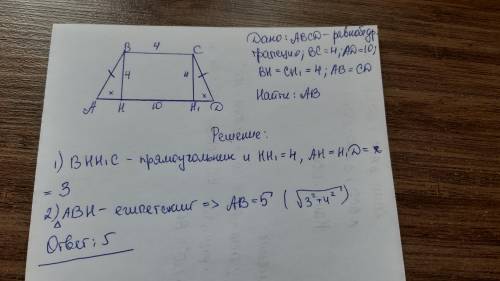 Дано: ABCD - равнобедр.
трапеция; BC = 4; AD = 10;
BH = CH₁ = 4; AB = CD
Найти: AB
B 4 C
4 4
x x
A H 10 H₁ D
Решение:
1) BHH₁C - прямоугольник и HH₁ = 4, AH = H₁D = x
= 3
2) ABH - египетский => AB = 5 (√3² + 4²)
△
Ответ: 5